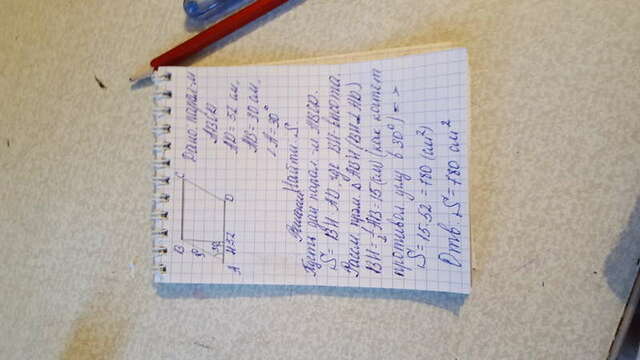 B C
Дано: парал-м
ABCD
AD = 52 см,
AB = 30 см,
∠A = 30°
A H 52 D
Решение Найти: S.
Пусть дан парал-м ABCD.
S = BH · AD, где BH-высота.
Рассм. прям. Δ ABH (BH⊥AD)
BH = ½ AB = 15 (см) (как катет
противол. углу в 30°) =>
S = 15·52 = 780 (см²)
Отв. S = 780 см²